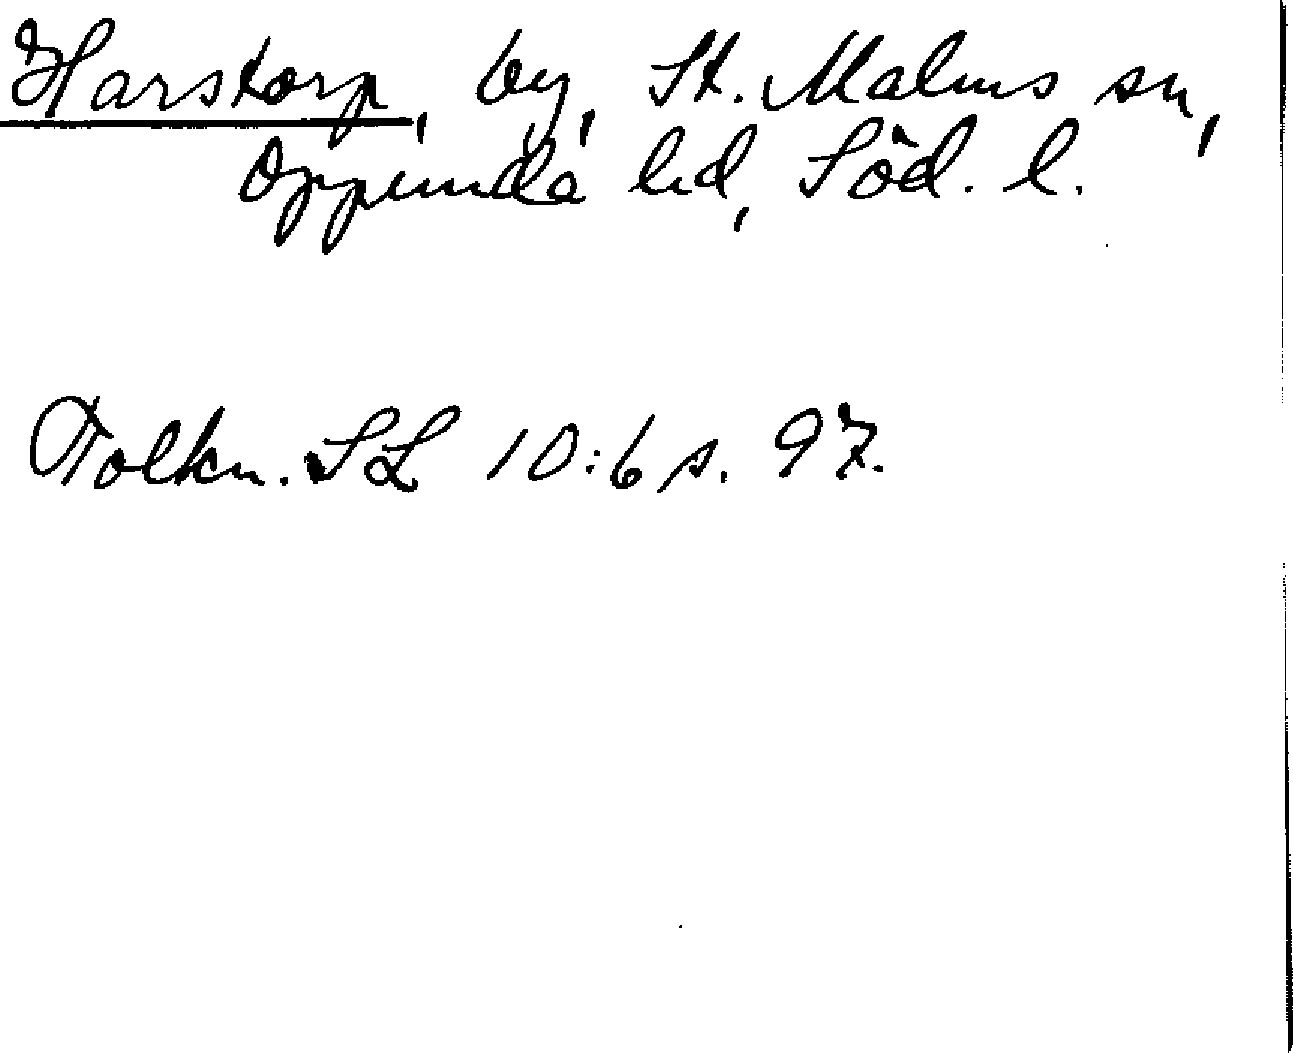 Harstorp, by, St. Malms sn,
Oppunda hd, Söd. l.
Tolkn. SL 10:6 s. 97.